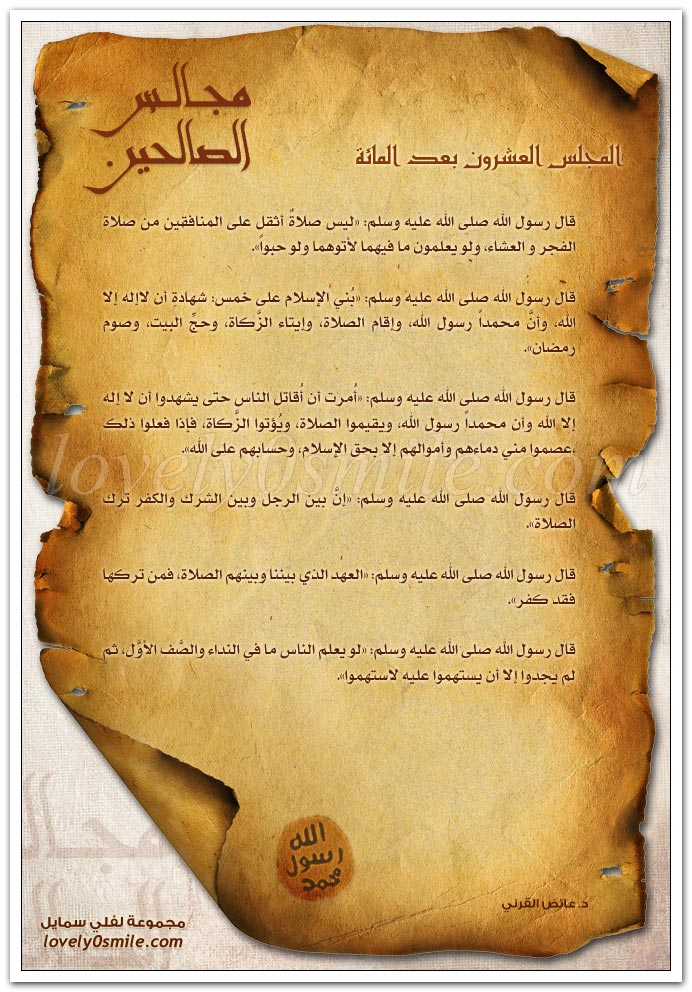 مجالس
الصالحين
المجلس العشرون بعد المائة
قال رسول الله صلى الله عليه وسلم: «ليس صلاةٌ أثقل على المنافقين من صلاة
الفجر و العشاء، ولو يعلمون ما فيهما لأتوهما ولو حبواً».
قال رسول الله صلى الله عليه وسلم: «بُني الإسلام على خمس: شهادة أن لاإله إلا
الله، وأنَّ محمداً رسول الله، وإقام الصلاة، وإيتاء الزَّكاة، وحجِّ البيت، وصوم
رمضان».
قال رسول الله صلى الله عليه وسلم: «أُمرت أن أُقاتل الناس حتى يشهدوا أن لا إله
إلا الله وأن محمداً رسول الله، ويقيموا الصلاة، ويُؤتوا الزَّكاة، فإذا فعلوا ذلك
،عصموا مني دماءهم وأموالهم إلا بحق الإسلام، وحسابهم على الله».
lovely0smile.com
قال رسول الله صلى الله عليه وسلم: «إنَّ بين الرجل وبين الشرك والكفر ترك
الصلاة».
قال رسول الله صلى الله عليه وسلم: «العهد الذي بيننا وبينهم الصلاة، فمن تركها
فقد كفر».
قال رسول الله صلى الله عليه وسلم: «لو يعلم الناس ما في النداء والصَّف الأوَّل، ثم
لم يجدوا إلا أن يستهموا عليه لاستهموا».
الله
رسول
محمد
د.عائض القرني
مجموعة لفلي سمايل
lovely0smile.com